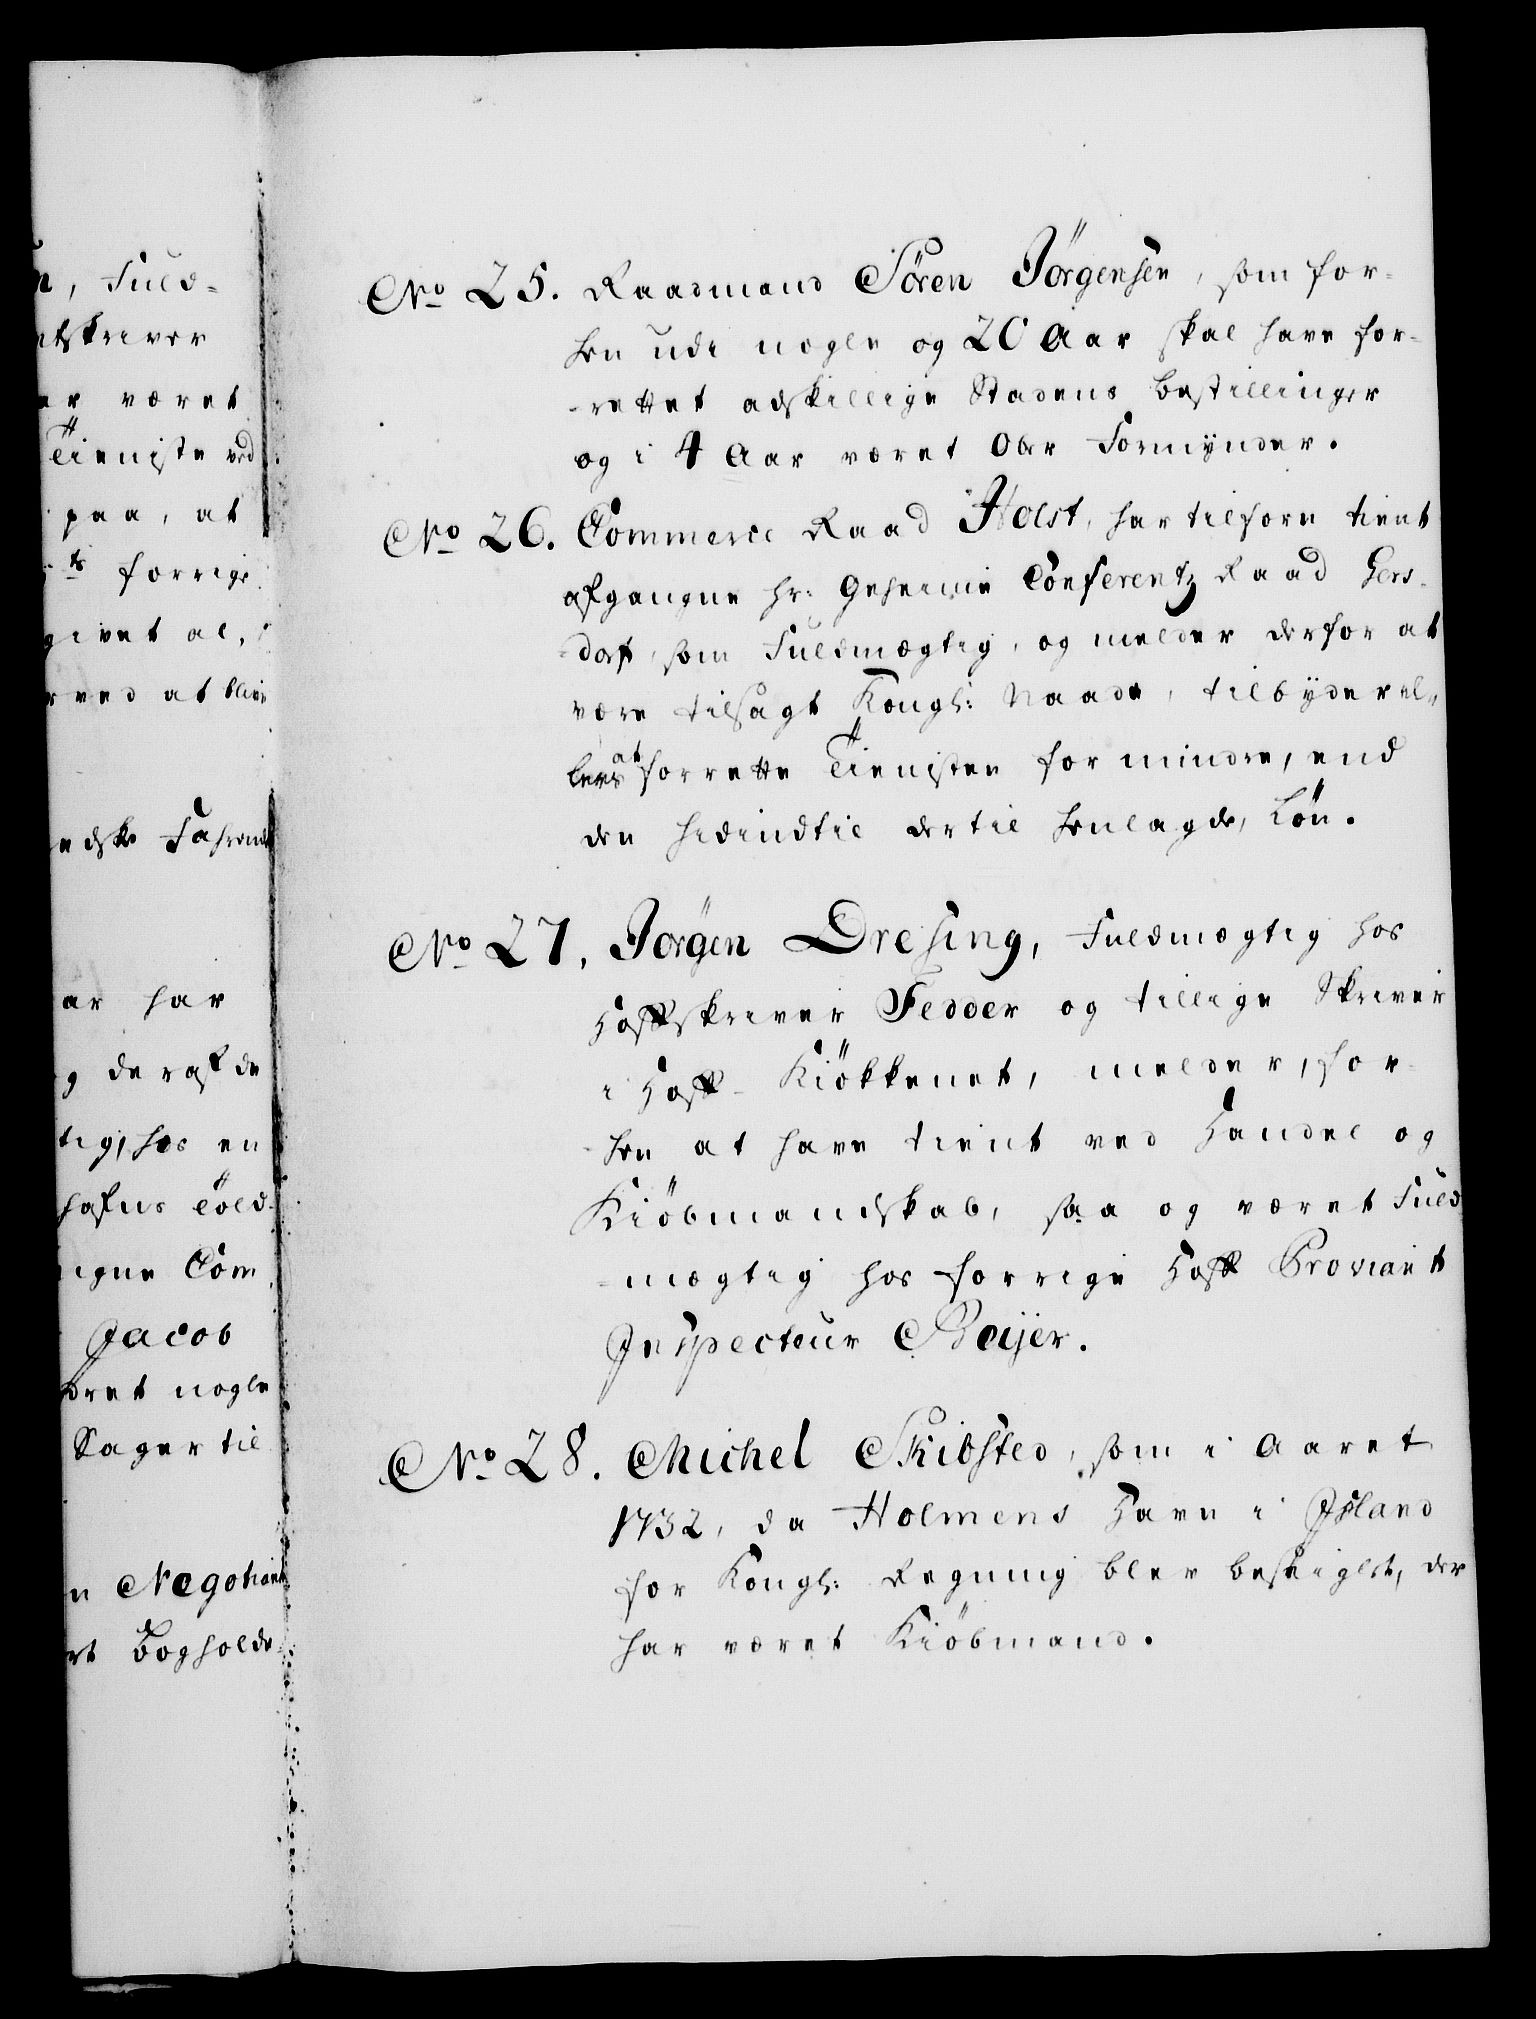 n, Fuld-
ntskriver
er været
Tieniste ved
paa, at
ts forrige
givet al,
rved at blive
ndske
ar har
g deraf de
tig, hos en
hafns Told-
ngne Com
Jacob
dret nogle
Sager til
n Negotiant
rt Bogholde
No 25. Raadmand Sören Jörgensen, som for-
hen udi nogle og 20 Aar skal have for-
-rettet adskillige Stadens Bestillinger
og i 4 Aar været Ober Formÿnder.
No 26. Commerce Raad Holst, har tilforn tient
afgangne Hr: Geheime Conferentz Raad Gers-
-dorf, som Fuldmægtig, og melder derfor at
være tilsagt Kongl: Naade, tilbÿder el-
lers at forrette Tienisten for mindre, end
den hidindtil dertil henlagde, Lön.
No 27. Jörgen Dresing, Fuldmægtig hos
Hoffskriver Fedder og tillige Skriver
i Hoff-Kiökkenet, melder, for-
-hen at have tient ved Handel og
Kiöbmandskab, saa og været Fuld
-mægtig hos forrige Hoff Proviant
Inspecteur Beijer.
No 28. Michel Skibsted, som i Aaret
1732, da Holmens Havn i Island
for Kongl: Regning blev beseiglet, der
har været Kiöbmand.